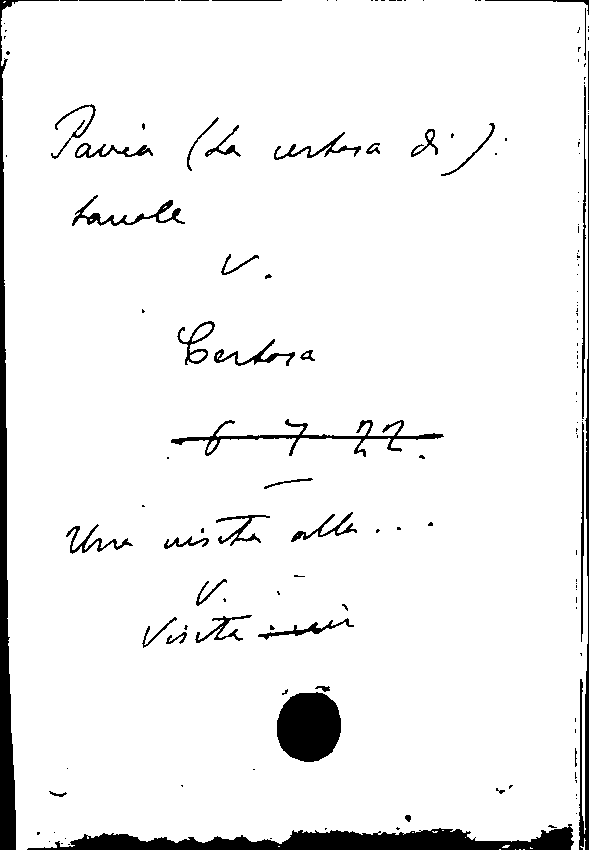 Pavia (La certosa di):
tavole
V.
Certosa
6 7 22.
Una visita alla...
V.
Visita